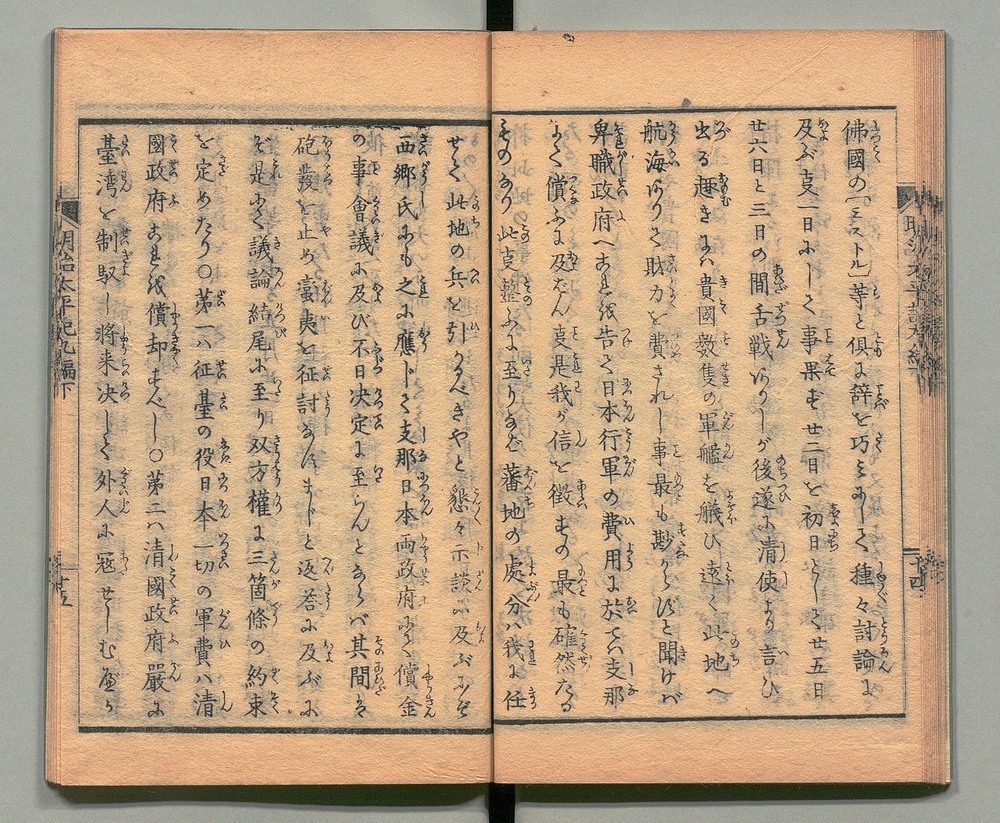 佛國の「ミストル」等と倶に辞を巧ミにして種々討論に
及ぶ支一日にして事果ず廿二日を初日として廿五日
廿六日と三日の間舌戦ありしが後遂に清使より言ひ
出る趣きには貴國數隻の軍艦を艤ひ遠く此地へ
航海ありて財力を費されし事最も尠からずと聞けば
卑職政府へ告て日本行軍の費用に於ては支那
にて償ふに及なん支是我が信を徴すの最も確然たる
ものなり此支整ふに至りなば蕃地の處分ハ我に任
せて此地の兵を引くべきやと懇々示談に及ぶにぞ
西郷氏にも之に應じて支那日本両政府にて償金
の事會議に及び不日決定に至らんとならバ其間は
砲發を止め臺夷を征討なすまじと返答に及ぶに
ぞ是にて議論結尾に至り双方權に三箇條の約束
を定めたり○第一ハ征臺の役日本一切の軍費ハ清
國政府より償却すべし○第二ハ清國政府嚴に
臺湾を制馭し將来决して外人に冦せしむ
明治太平記九編下
十五